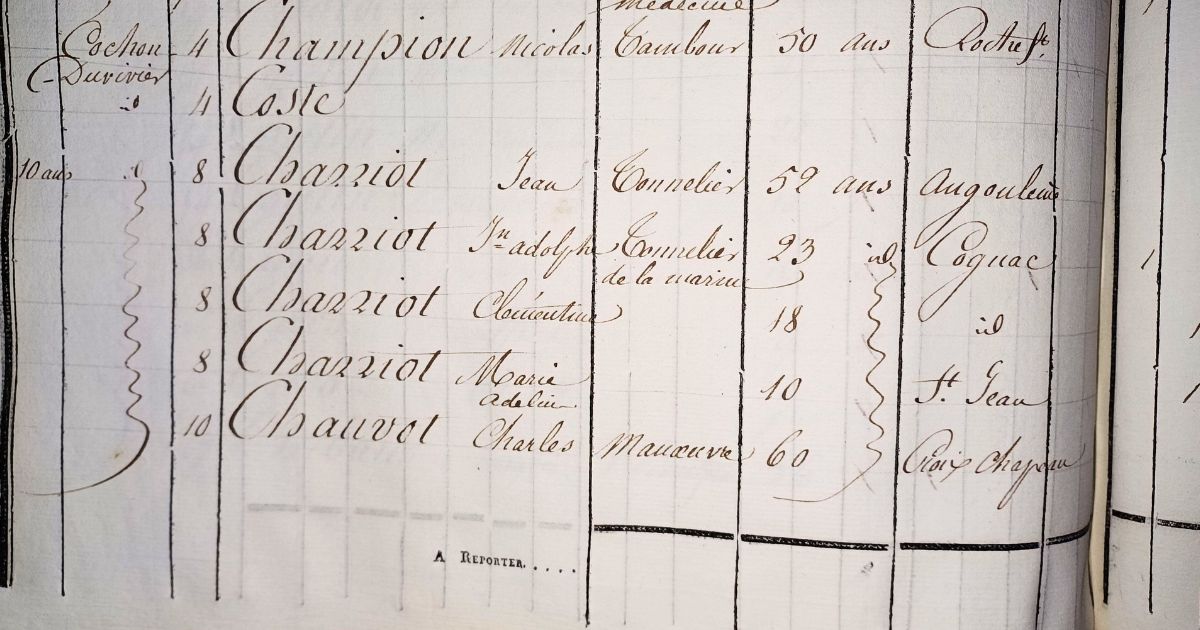 médecine
Cochon 4 Champion Nicolas Tambour 50 ans Rochef.t
Duvivier
id 4 Coste
10 ans id 8 Charriot Jean Tonnelier 52 ans Angoulême
8 Charriot J.n adolphe Tonnelier 23 id Cognac 1
de la marine
8 Charriot Clémentine 18 id 1
8 Charriot Marie 10 S.t Jean 1
adeline
10 Chauvot Charles Manœuvre 60 Croix chapeau
A REPORTER.....